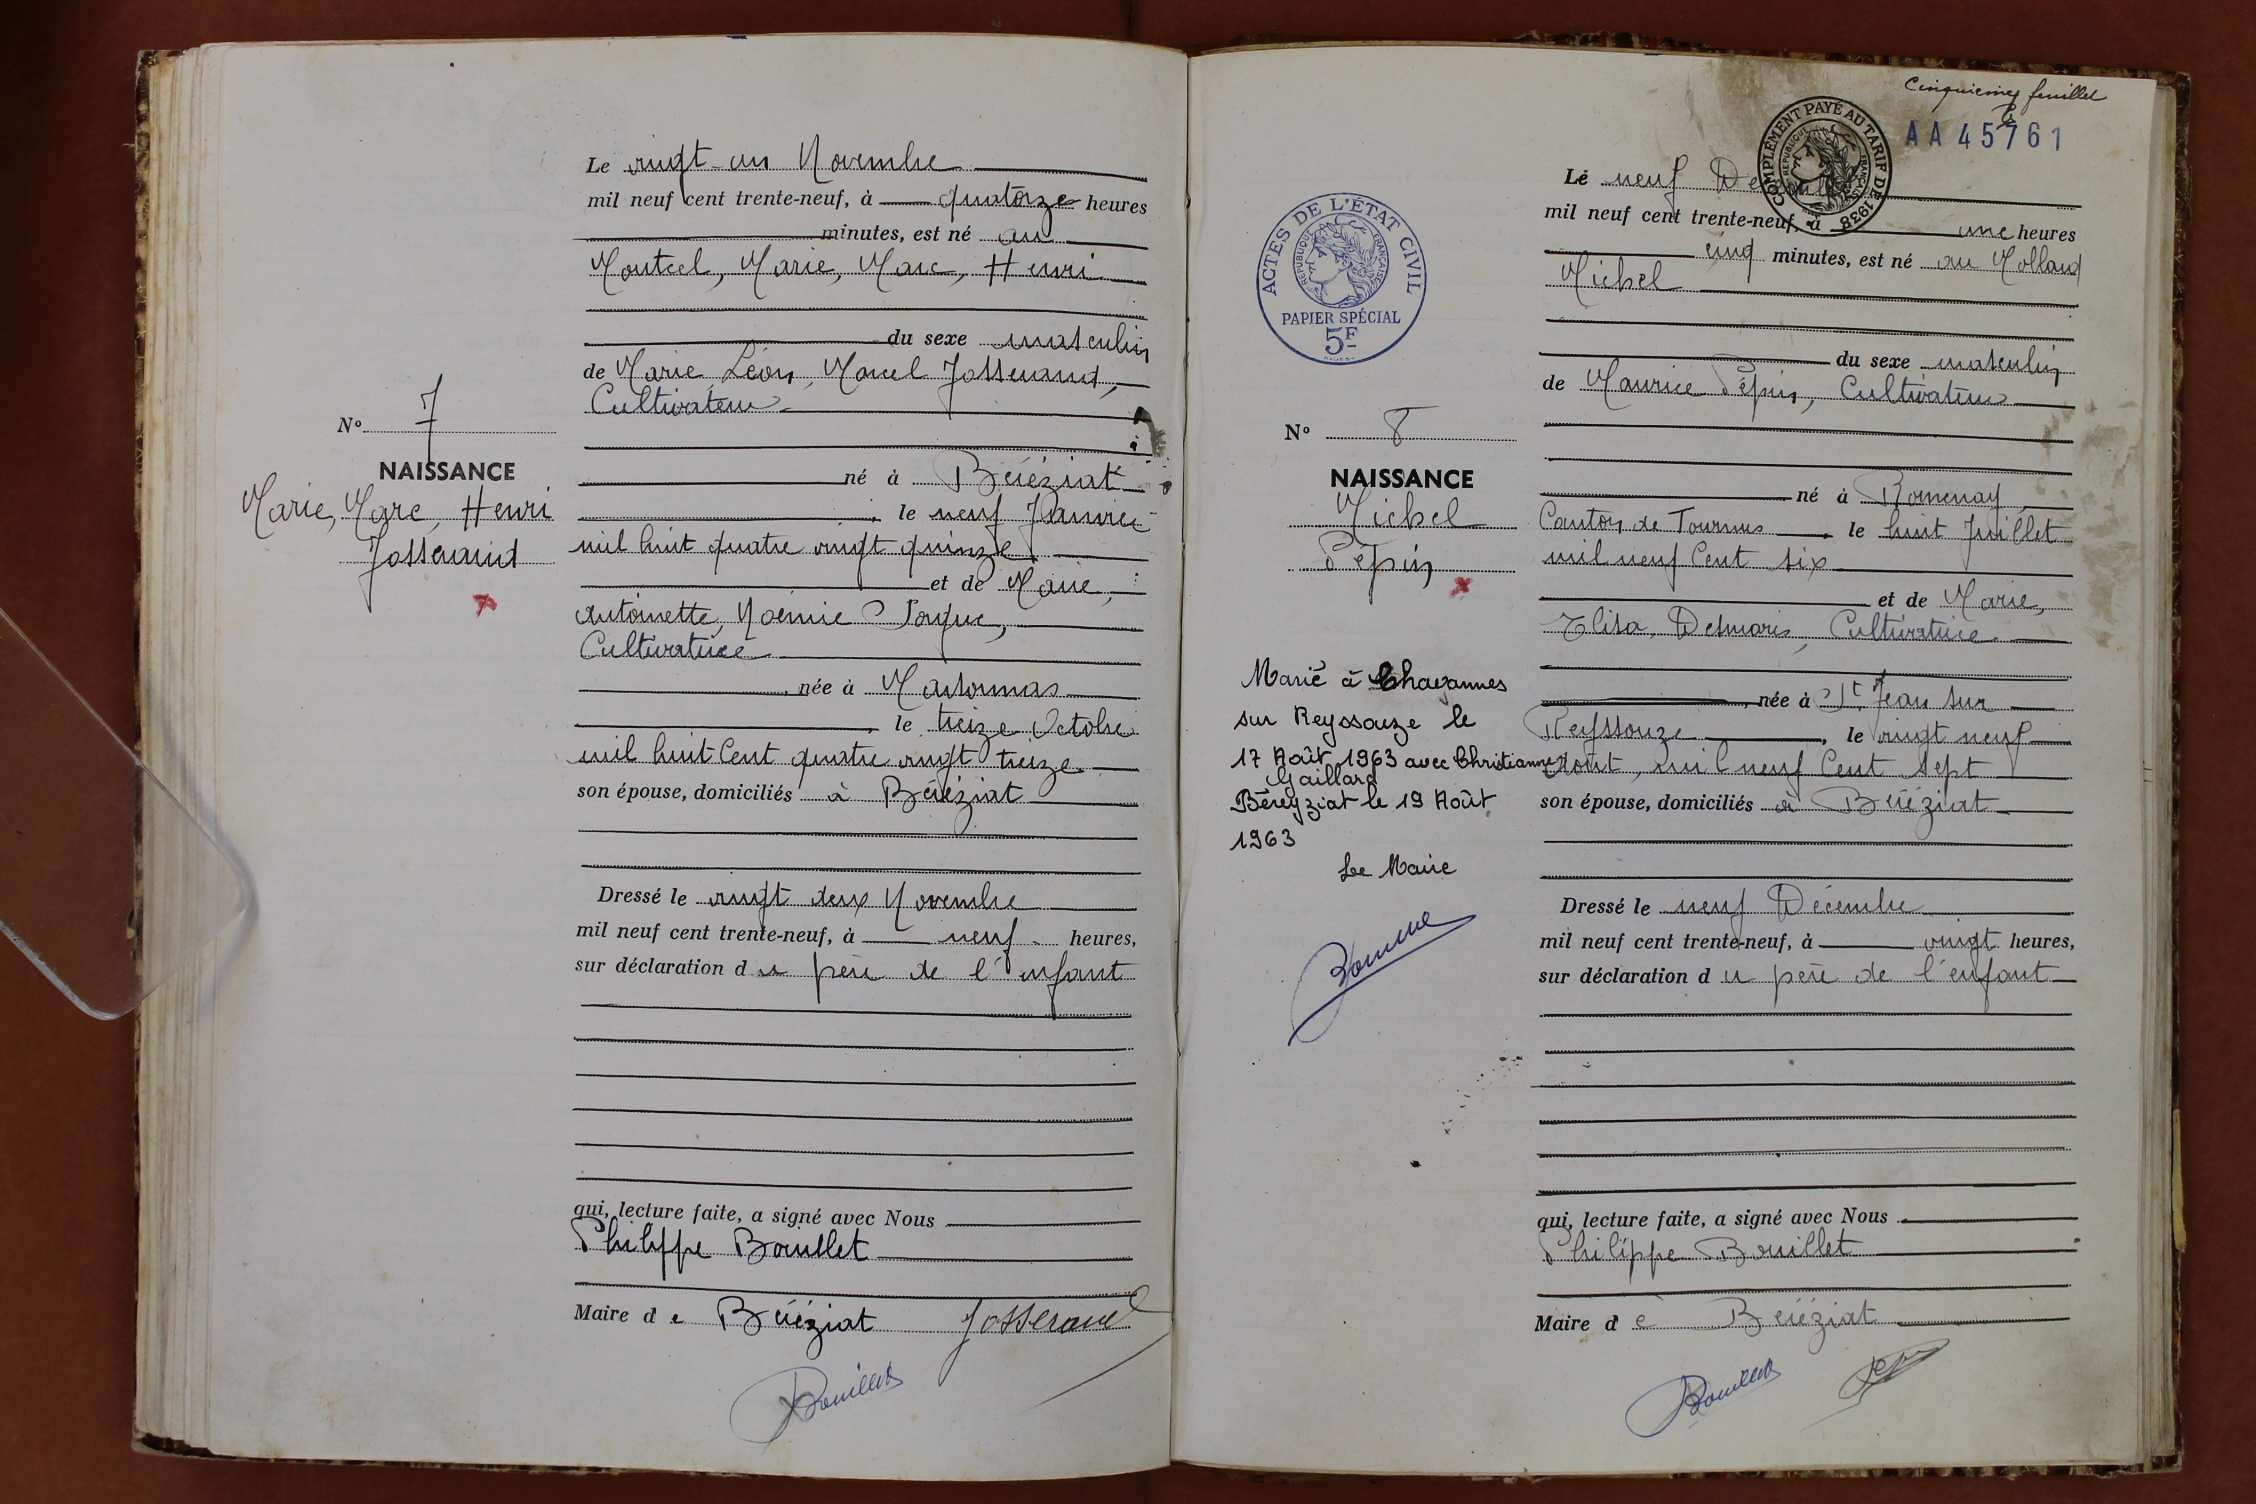 Le vingt-un Novembre
mil neuf cent trente-neuf, à quatorze heures
minutes, est né au
Montcel, Marie, Marc, Henri
du sexe masculin
de Marie, Léon, Marcel Josserand,
Cultivateur
N° 7
NAISSANCE
Marie, Marc, Henri
Josserand
né à Béréziat
, le neuf Janvier
mil huit quatre vingt quinze
et de Marie,
Antoinette, Noémie
Cultivatrice
, née à
, le treize Octobre
mil huit Cent quatre vingt treize
son épouse, domiciliés à Béréziat
Dressé le vingt deux Novembre
mil neuf cent trente-neuf, à neuf heures,
sur déclaration du père de l'enfant
qui, lecture faite, a signé avec Nous
Philippe Bouillet
Maire de Béréziat Josserand
Bouillet
Cinquième feuillet
AA45761
COMPLÉMENT PAYÉ AU TARIF DE 1938
RÉPUBLIQUE FRANÇAISE
ACTES DE L'ÉTAT CIVIL
RÉPUBLIQUE FRANÇAISE
PAPIER SPÉCIAL
5F
Le neuf Décembre
mil neuf cent trente-neuf, à une heures
cinq minutes, est né au Molland
Michel
du sexe masculin
de Maurice Pépin, Cultivateur
N° 8
NAISSANCE
Michel
Pépin
né à Romenay
Canton de Tournus, le huit Juillet
mil neuf Cent six
et de Marie,
Elisa, Desmaris, Cultivatrice
, née à St Jean sur
Reyssouze, le vingt neuf
Août, mil neuf Cent sept
son épouse, domiciliés à Béréziat
Marié à Chavannes
sur Reyssouze le
17 Août 1963 avec Christianne
Gaillard
Béreyziat le 19 Août
1963
Le Maire
Dressé le neuf Décembre
mil neuf cent trente-neuf, à vingt heures,
sur déclaration du père de l'enfant
qui, lecture faite, a signé avec Nous
Philippe Bouillet
Maire de Béréziat
Bouillet